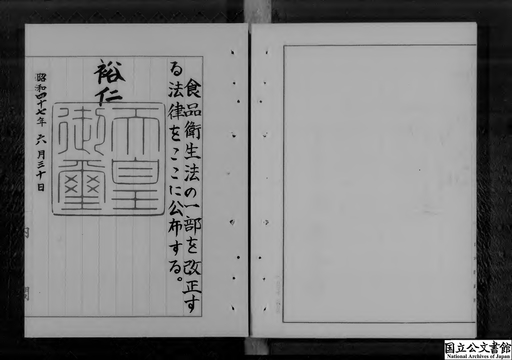 食品衛生法の一部を改正す
る法律をここに公布する。
裕仁
天皇
御璽
昭和四十七年六月三十日
内閣
国立公文書館
National Archives of Japan